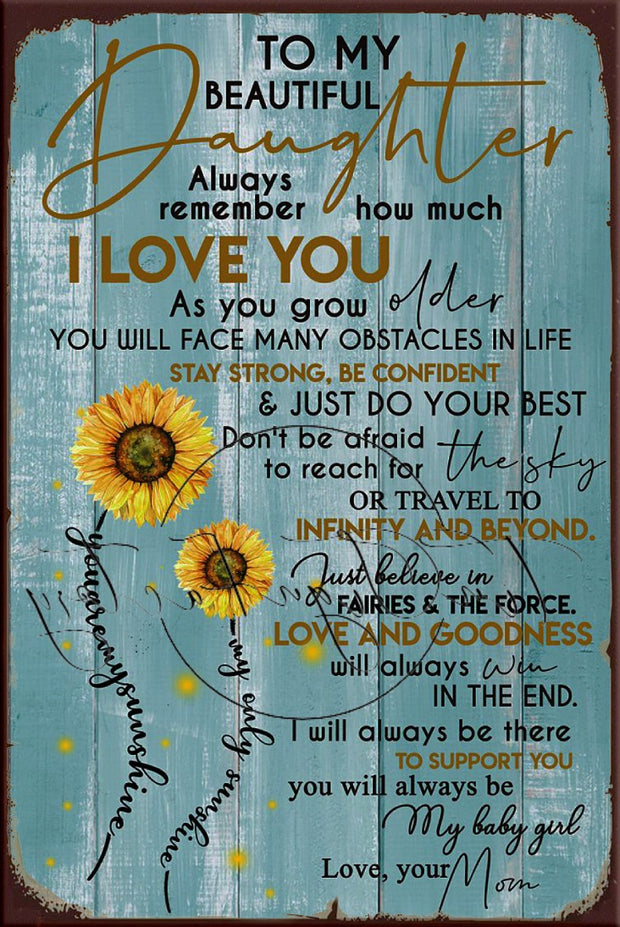 TO MY
BEAUTIFUL
Daughter
Always
remember how much
I LOVE YOU
As you grow older
YOU WILL FACE MANY OBSTACLES IN LIFE
STAY STRONG, BE CONFIDENT
& JUST DO YOUR BEST
Don't be afraid
to reach for the sky
OR TRAVEL TO
INFINITY AND BEYOND.
Just believe in
FAIRIES & THE FORCE.
LOVE AND GOODNESS
will always win
IN THE END.
I will always be there
TO SUPPORT YOU
you will always be
My baby girl
Love, your Mom
you are my sunshine
my only sunshine